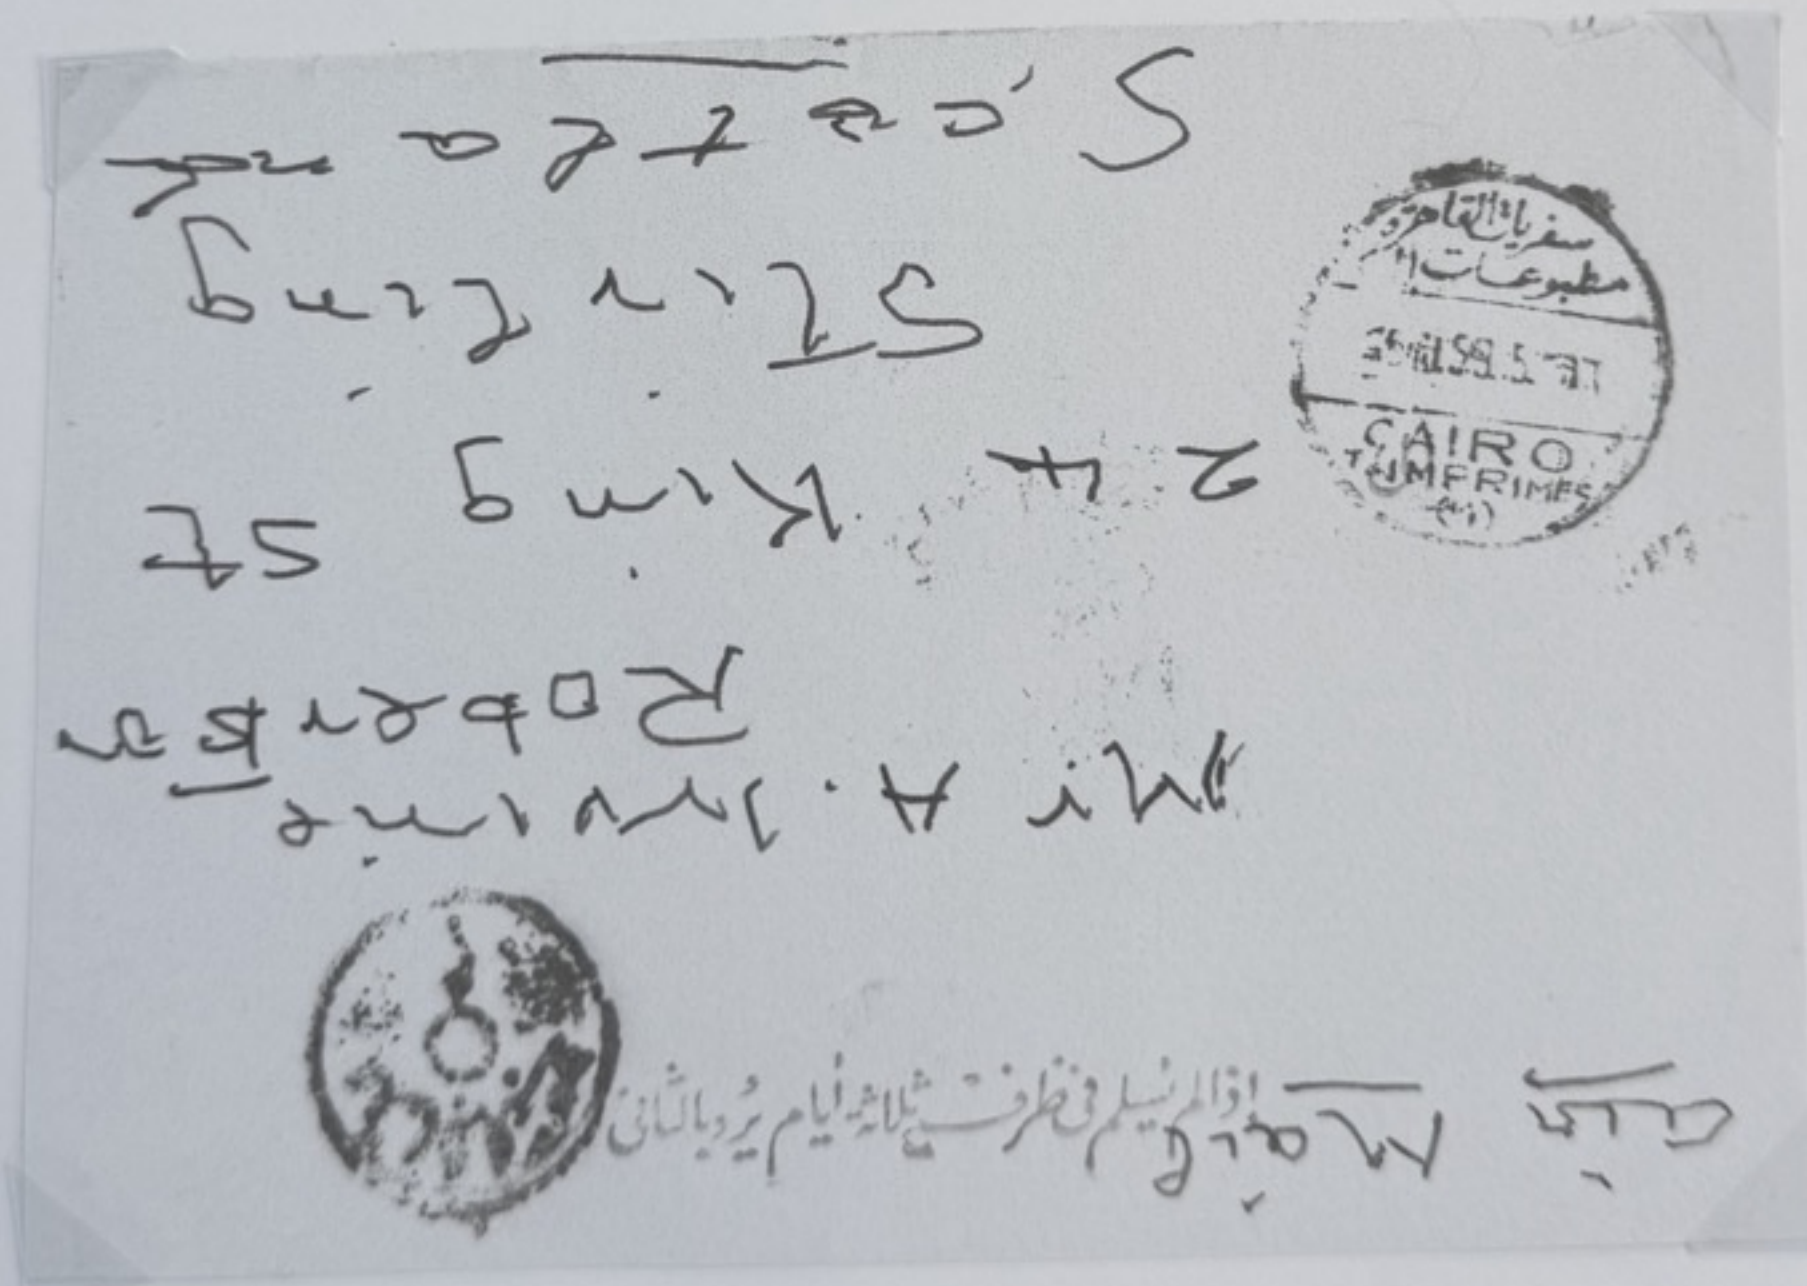 Air Mail
Mr A. Irvine
Robertson
24 King St
Stirling
Scotland
سفريات القاهرة
مطبوعات
CAIRO
IMPRIMES
إذا لم يسلم فى ظرف ثلاثة أيام يُرد